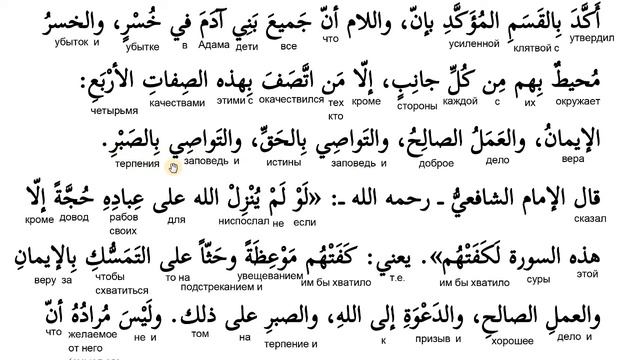 أَكَّدَ بِالقَسَمِ المُؤَكَّدِ بإنّ، واللام أنّ جَميعَ بَنِي آدَمَ في خُسْرٍ، والخسرُ
утвердил клятвой с усиленной что все дети Адама убытке в убыток и
مُحيطٌ بِهم مِن كُلِّ جانِبٍ، إلّا مَن اتَّصَفَ بِهذه الصِفاتِ الأرْبَعِ:
окружает их с каждой стороны кроме тех кто охачествился этими с качествами четырьмя
الإيمانُ، والعَمَلُ الصالِحُ، والتَواصِي بِالحَقِّ، والتَواصِي بِالصَبْرِ.
вера дело доброе заповедь и истины заповедь и терпения
قال الإمام الشافعيُّ ـ رحمه الله ـ: «لَوْ لَمْ يُنْزِلْ الله على عِبادِهِ حُجَّةً إلّا
сказал если не ниспослал для рабов своих довод кроме
هذه السورة لَكَفَتْهُم». يعني: كَفَتْهُم مَوْعِظَةً وحَثّاً على التَمَسُّكِ بِالإيمانِ
этой суры им бы хватило т.е. им бы хватило увещеванием подстреканием и то на чтобы схватиться за веру
والعملِ الصالحِ، والدَعْوَةِ إلى اللهِ، والصبرِ على ذلك. ولَيْسَ مُرادُهُ أنّ
дело и хорошее призыв и к терпение и на том не и желаемое от него что